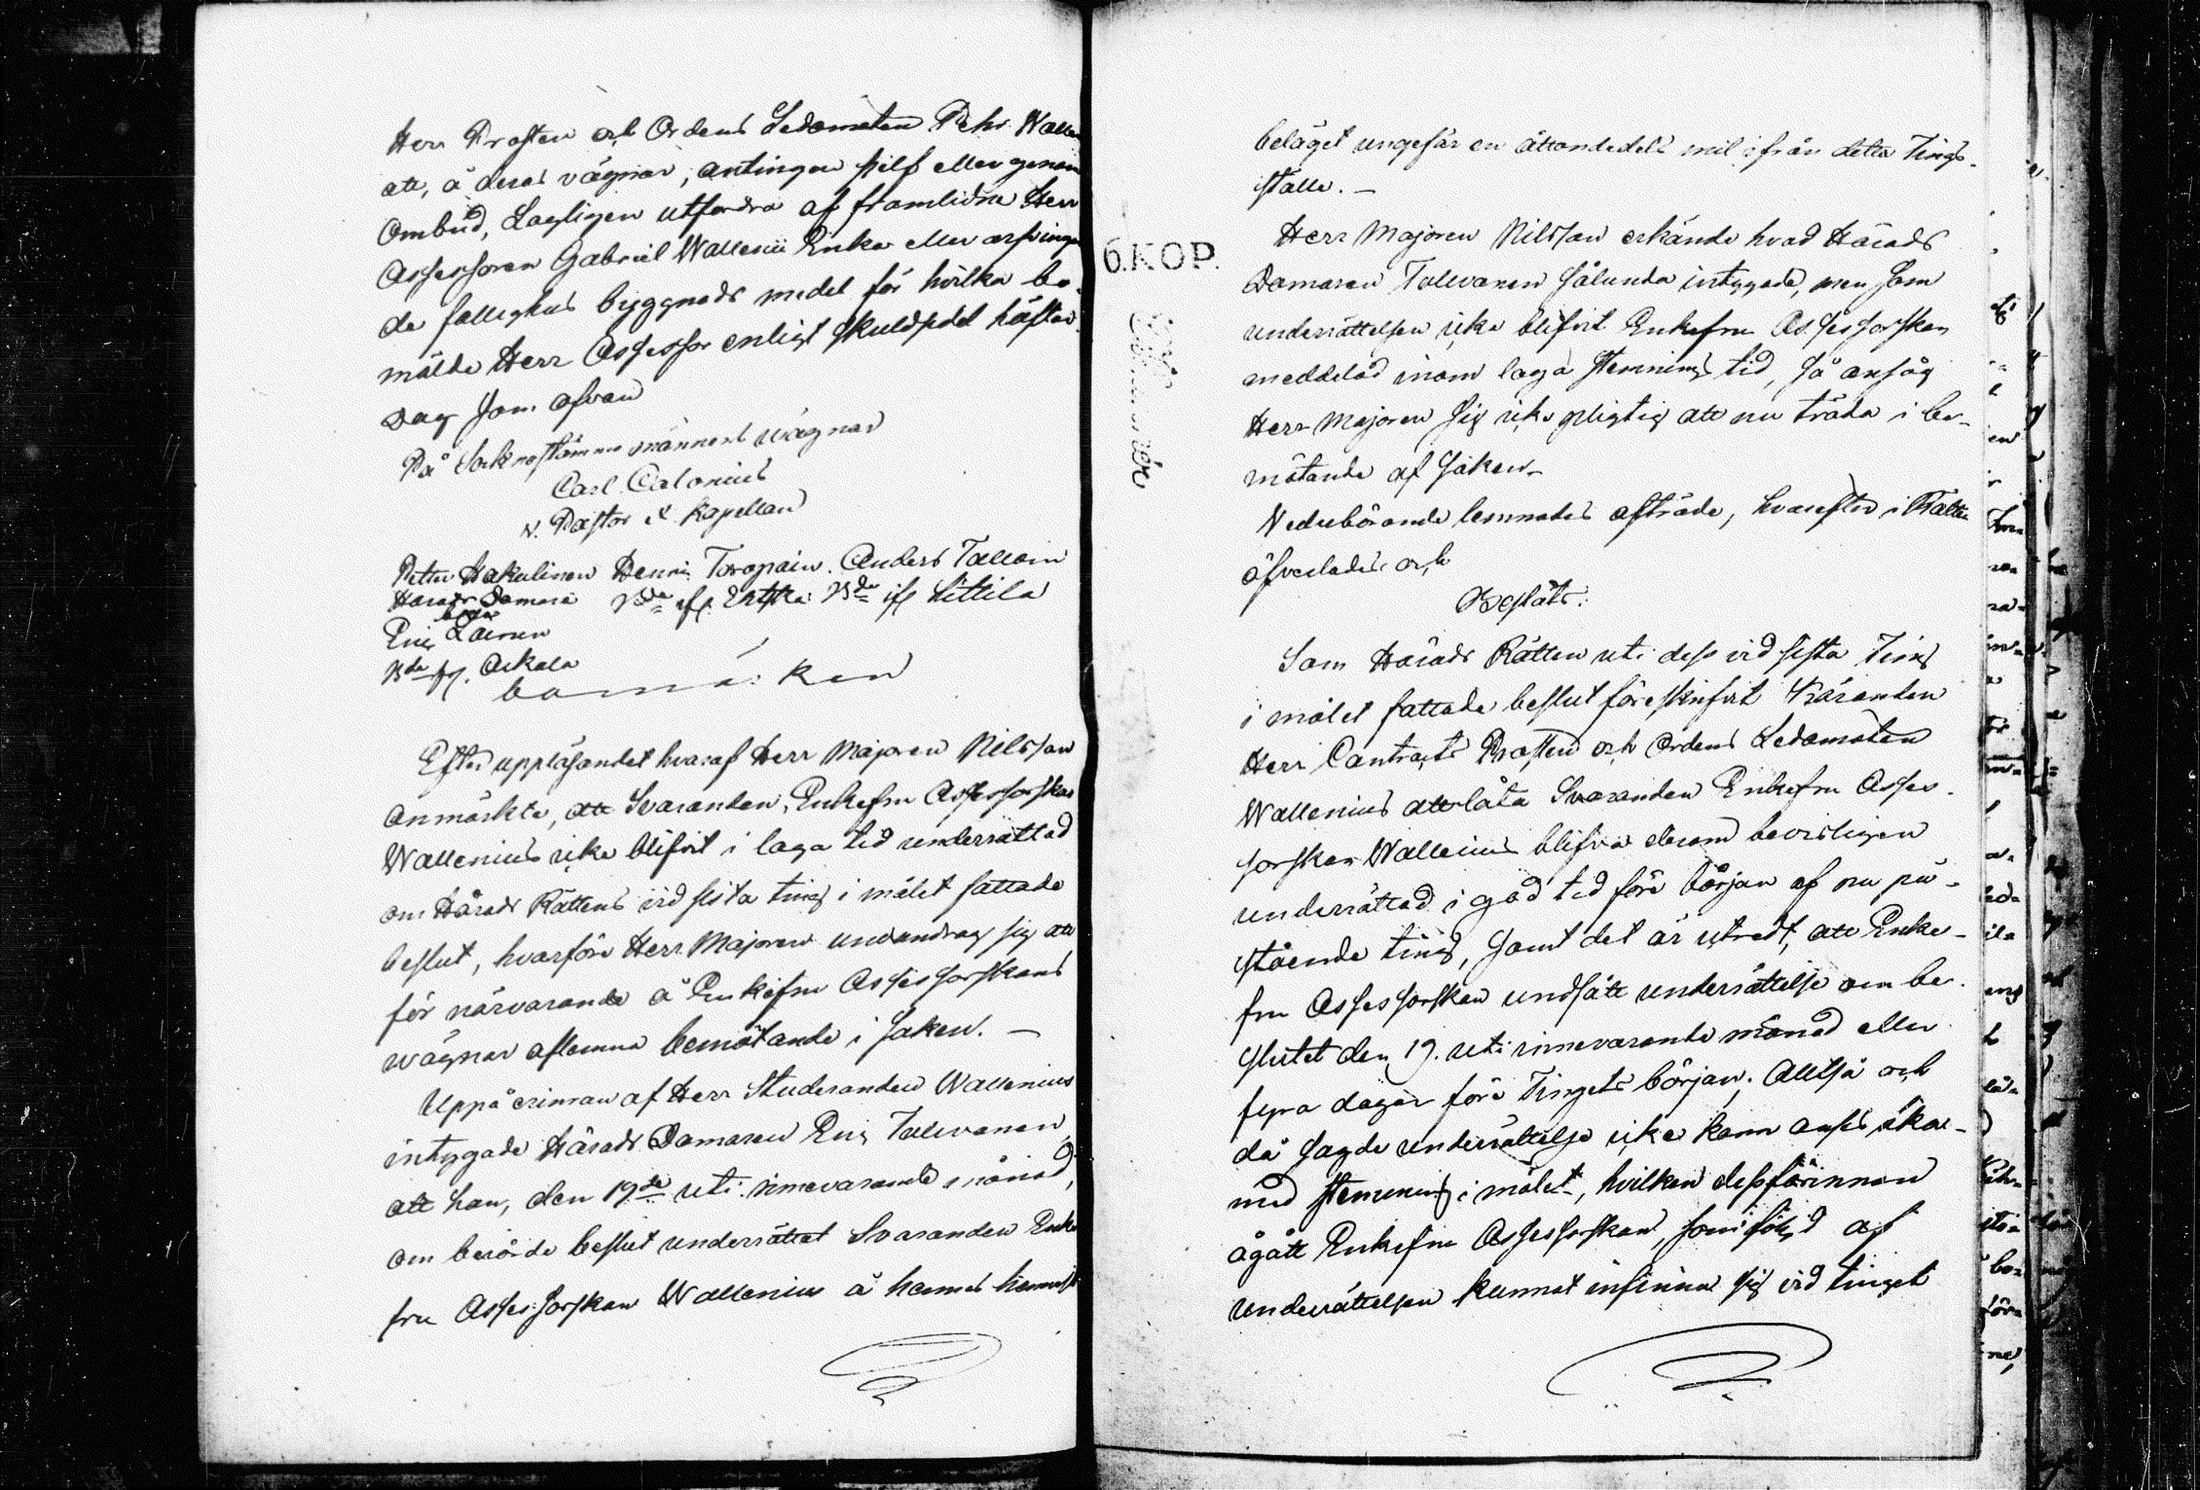 Herr Prosten och Ordens Ledamoten Pehr Walle
att, å deras vägnar, antingen sielf eller genom
Ombud, Lagligen utfordra af framlidne Herr
Assessoren Gabriel Wallenii Enka eller arfvingar
de fattighus byggnads medel för hvilka be-
mälde Herr Assessor enligt skuldsedel häftar.
Dag som ofvan
På Socknestämmo männens vägnar
Carl Calonius
v. Pastor et Kapellan
Petter Hakulinen Henric Toropain. Anders Tallain
Härads Domare Bde ifr. Bde ifr Littila
Eric Laenen
Bde fr. Askala
bomärken
Efter uppläsandet hvaraf Herr Majoren Nilsson
anmärkte, att Svaranden, Enkefru Assessorskan
Wallenius icke blifvit i laga tid underrättad
om Härads Rättens vid sista ting i målet fattade
beslut, hvarföre Herr Majoren undandrog sig att
för närvarande å Enkefru Assessorskans
vägnar aflemna bemötande i saken. —
Uppå erinran af Herr Studeranden Wallenius
intygade Härads Domaren Eric Tolevanen,
att han, den 19de uti innevarande månad,
om berörde beslut underrättat Svaranden Enke
fru Assessorskan Wallenius å hennes hemvist
beläget ungefär en åttondedels mil ifrån detta Tings-
ställe. —
6.KOP.
Herr Majoren Nilsson erkände hvad Härads
Domaren Tolevanen sålunda intygade, men som
underrättelsen icke blifvit Enkefru Assessorskan
meddelad inom laga stemnings tid, så ansåg
Herr Majoren sig icke pligtig att nu träda i be-
mötande af saken.
Vederbörande lemnades afträde, hvarefter i Rätten
öfverlades och
Beslöts:
Som Härads Rätten uti dess vid sista Ting
i målet fattade beslut föreskrifvit Käranden
Herr Contracts Prosten och Ordens Ledamoten
Wallenius att låta Svaranden Enkefru Asses-
sorskan Wallenius blifva derom bevisligen
underrättad i god tid före början af nu på-
stående ting, samt det är utredt, att Enke-
fru Assessorskan undfått underrättelse om be-
slutet den 19. uti innevarande månad eller
fyra dagar före Tingets början; Alltså och
då sagde underrättelse icke kan anses lika-
med stemning i målet, hvilken dessförinnan
ågått Enkefru Assessorskan, som i följd af
underrättelsen kunnat infinna sig vid tinget